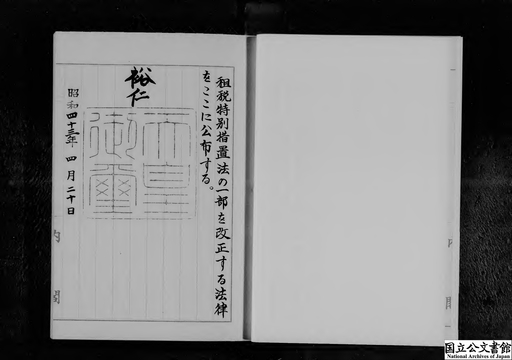 租税特別措置法の一部を改正する法律
をここに公布する。
裕仁
天皇
御璽
昭和四十三年四月二十日
国立公文書館
National Archives of Japan